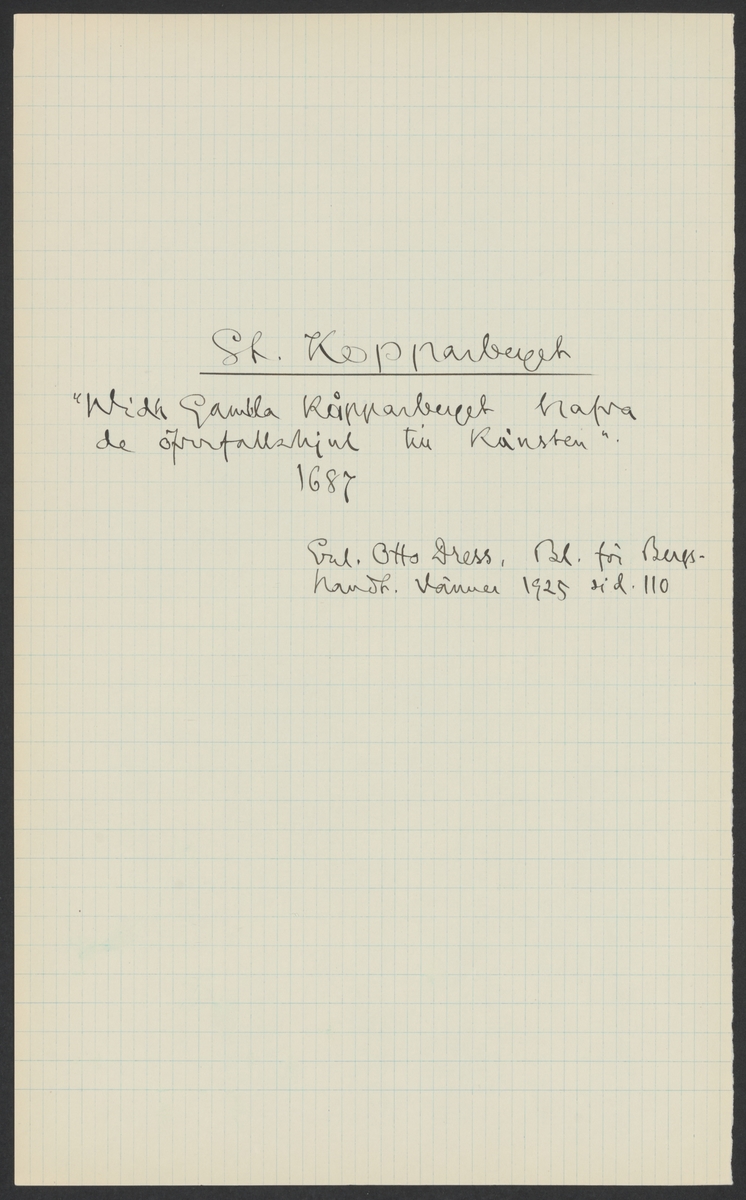 St. Kopparberget
"Widh Gambla Kåpparberget hafva
de öfverfallshjul till Konsten".
1687
Enl. Otto Dress, Bl. för Bergs-
handt. Vänner 1925 sid. 110